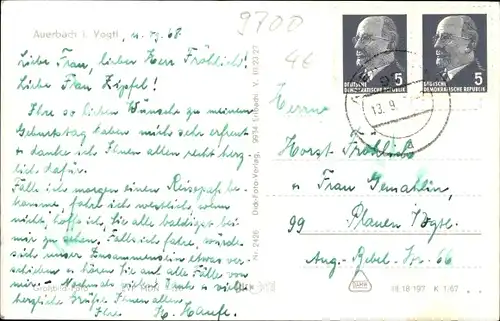 Auerbach i. Vogtl., 11.09.68
9700
Liebe Frau, lieber Herr Fröhlich!
Liebe Frau Zipfel!
Ihre so lieben Wünsche zu meinem
Geburtstag haben mich sehr erfreut
& danke ich Ihnen allen recht herz-
lich dafür.
Falls ich morgen einen Reisepaß be-
komme, fahre ich westlich, wenn
nicht, hoffe ich, Sie alle baldigst bei
mir zu sehen. Falls ich fahre, würde
sich unser Zusammensein etwas ver-
schieben & hören Sie auf alle Fälle von
mir. - Nochmals vielen Dank & viele
herzliche Grüße Ihnen allen
Ihre H. Haufe.
Nr. 2426 Dick-Foto-Verlag, 9934 Erlbach V. 10 23 27
DEUTSCHE
DEMOKRATISCHE REPUBLIK
5
DEUTSCHE
DEMOKRATISCHE REPUBLIK
5
13.9
Herrn
Horst Fröhlich
& Frau Gemahlin,
99 Plauen Vogtl.
Aug.-Bebel-Str. 66
III 18 197 K 1/67